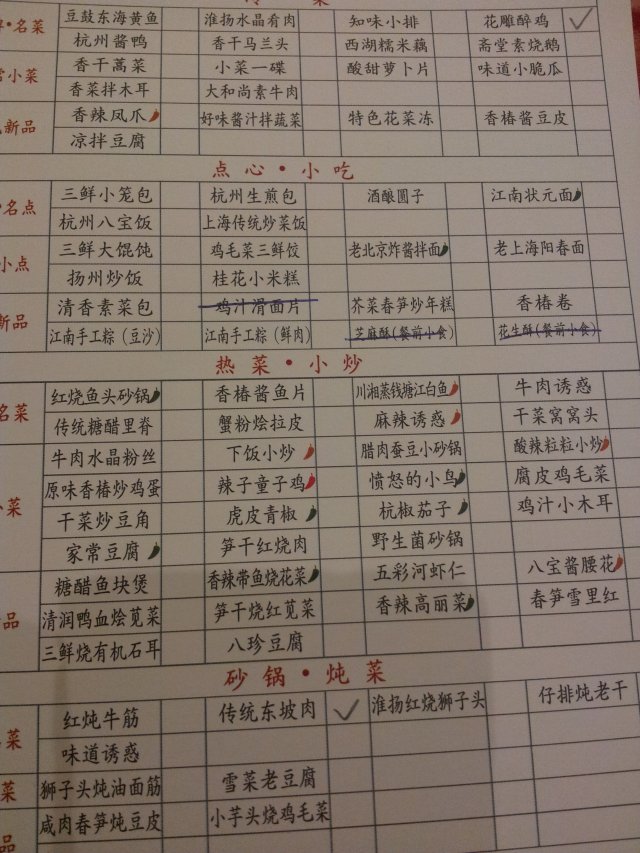 菜
名菜 豆鼓东海黄鱼 淮扬水晶肴肉 知味小排 花雕醉鸡
杭州酱鸭 香干马兰头 西湖糯米藕 斋堂素烧鹅
小菜 香干蒿菜 小菜一碟 酸甜萝卜片 味道小脆瓜
香菜拌木耳 大和尚素牛肉
新品 香辣凤爪 好味酱汁拌蔬菜 特色花菜冻 香椿酱豆皮
凉拌豆腐
点心•小吃
名点 三鲜小笼包 杭州生煎包 酒酿圆子 江南状元面
杭州八宝饭 上海传统炒菜饭
小点 三鲜大馄饨 鸡毛菜三鲜饺 老北京炸酱拌面 老上海阳春面
扬州炒饭 桂花小米糕
新品 清香素菜包 鸡汁滑面片 芥菜春笋炒年糕 香椿卷
江南手工粽（豆沙） 江南手工粽（鲜肉） 芝麻酥(餐前小食) 花生酥(餐前小食)
热菜•小炒
名菜 红烧鱼头砂锅 香椿酱鱼片 川湘蒸钱塘江白鱼 牛肉诱惑
传统糖醋里脊 蟹粉烩拉皮 麻辣诱惑 干菜窝窝头
小菜 牛肉水晶粉丝 下饭小炒 腊肉蚕豆小砂锅 酸辣粒粒小炒
原味香椿炒鸡蛋 辣子童子鸡 愤怒的小鸟 腐皮鸡毛菜
干菜炒豆角 虎皮青椒 杭椒茄子 鸡汁小木耳
家常豆腐 笋干红烧肉 野生菌砂锅
品 糖醋鱼块煲 香辣带鱼烧花菜 五彩河虾仁 八宝酱腰花
清润鸭血烩苋菜 笋干烧红苋菜 香辣高丽菜 春笋雪里红
三鲜烧有机石耳 八珍豆腐
砂锅•炖菜
菜 红炖牛筋 传统东坡肉 淮扬红烧狮子头 仔排炖老干
味道诱惑
菜 狮子头炖油面筋 雪菜老豆腐
品 咸肉春笋炖豆皮 小芋头烧鸡毛菜